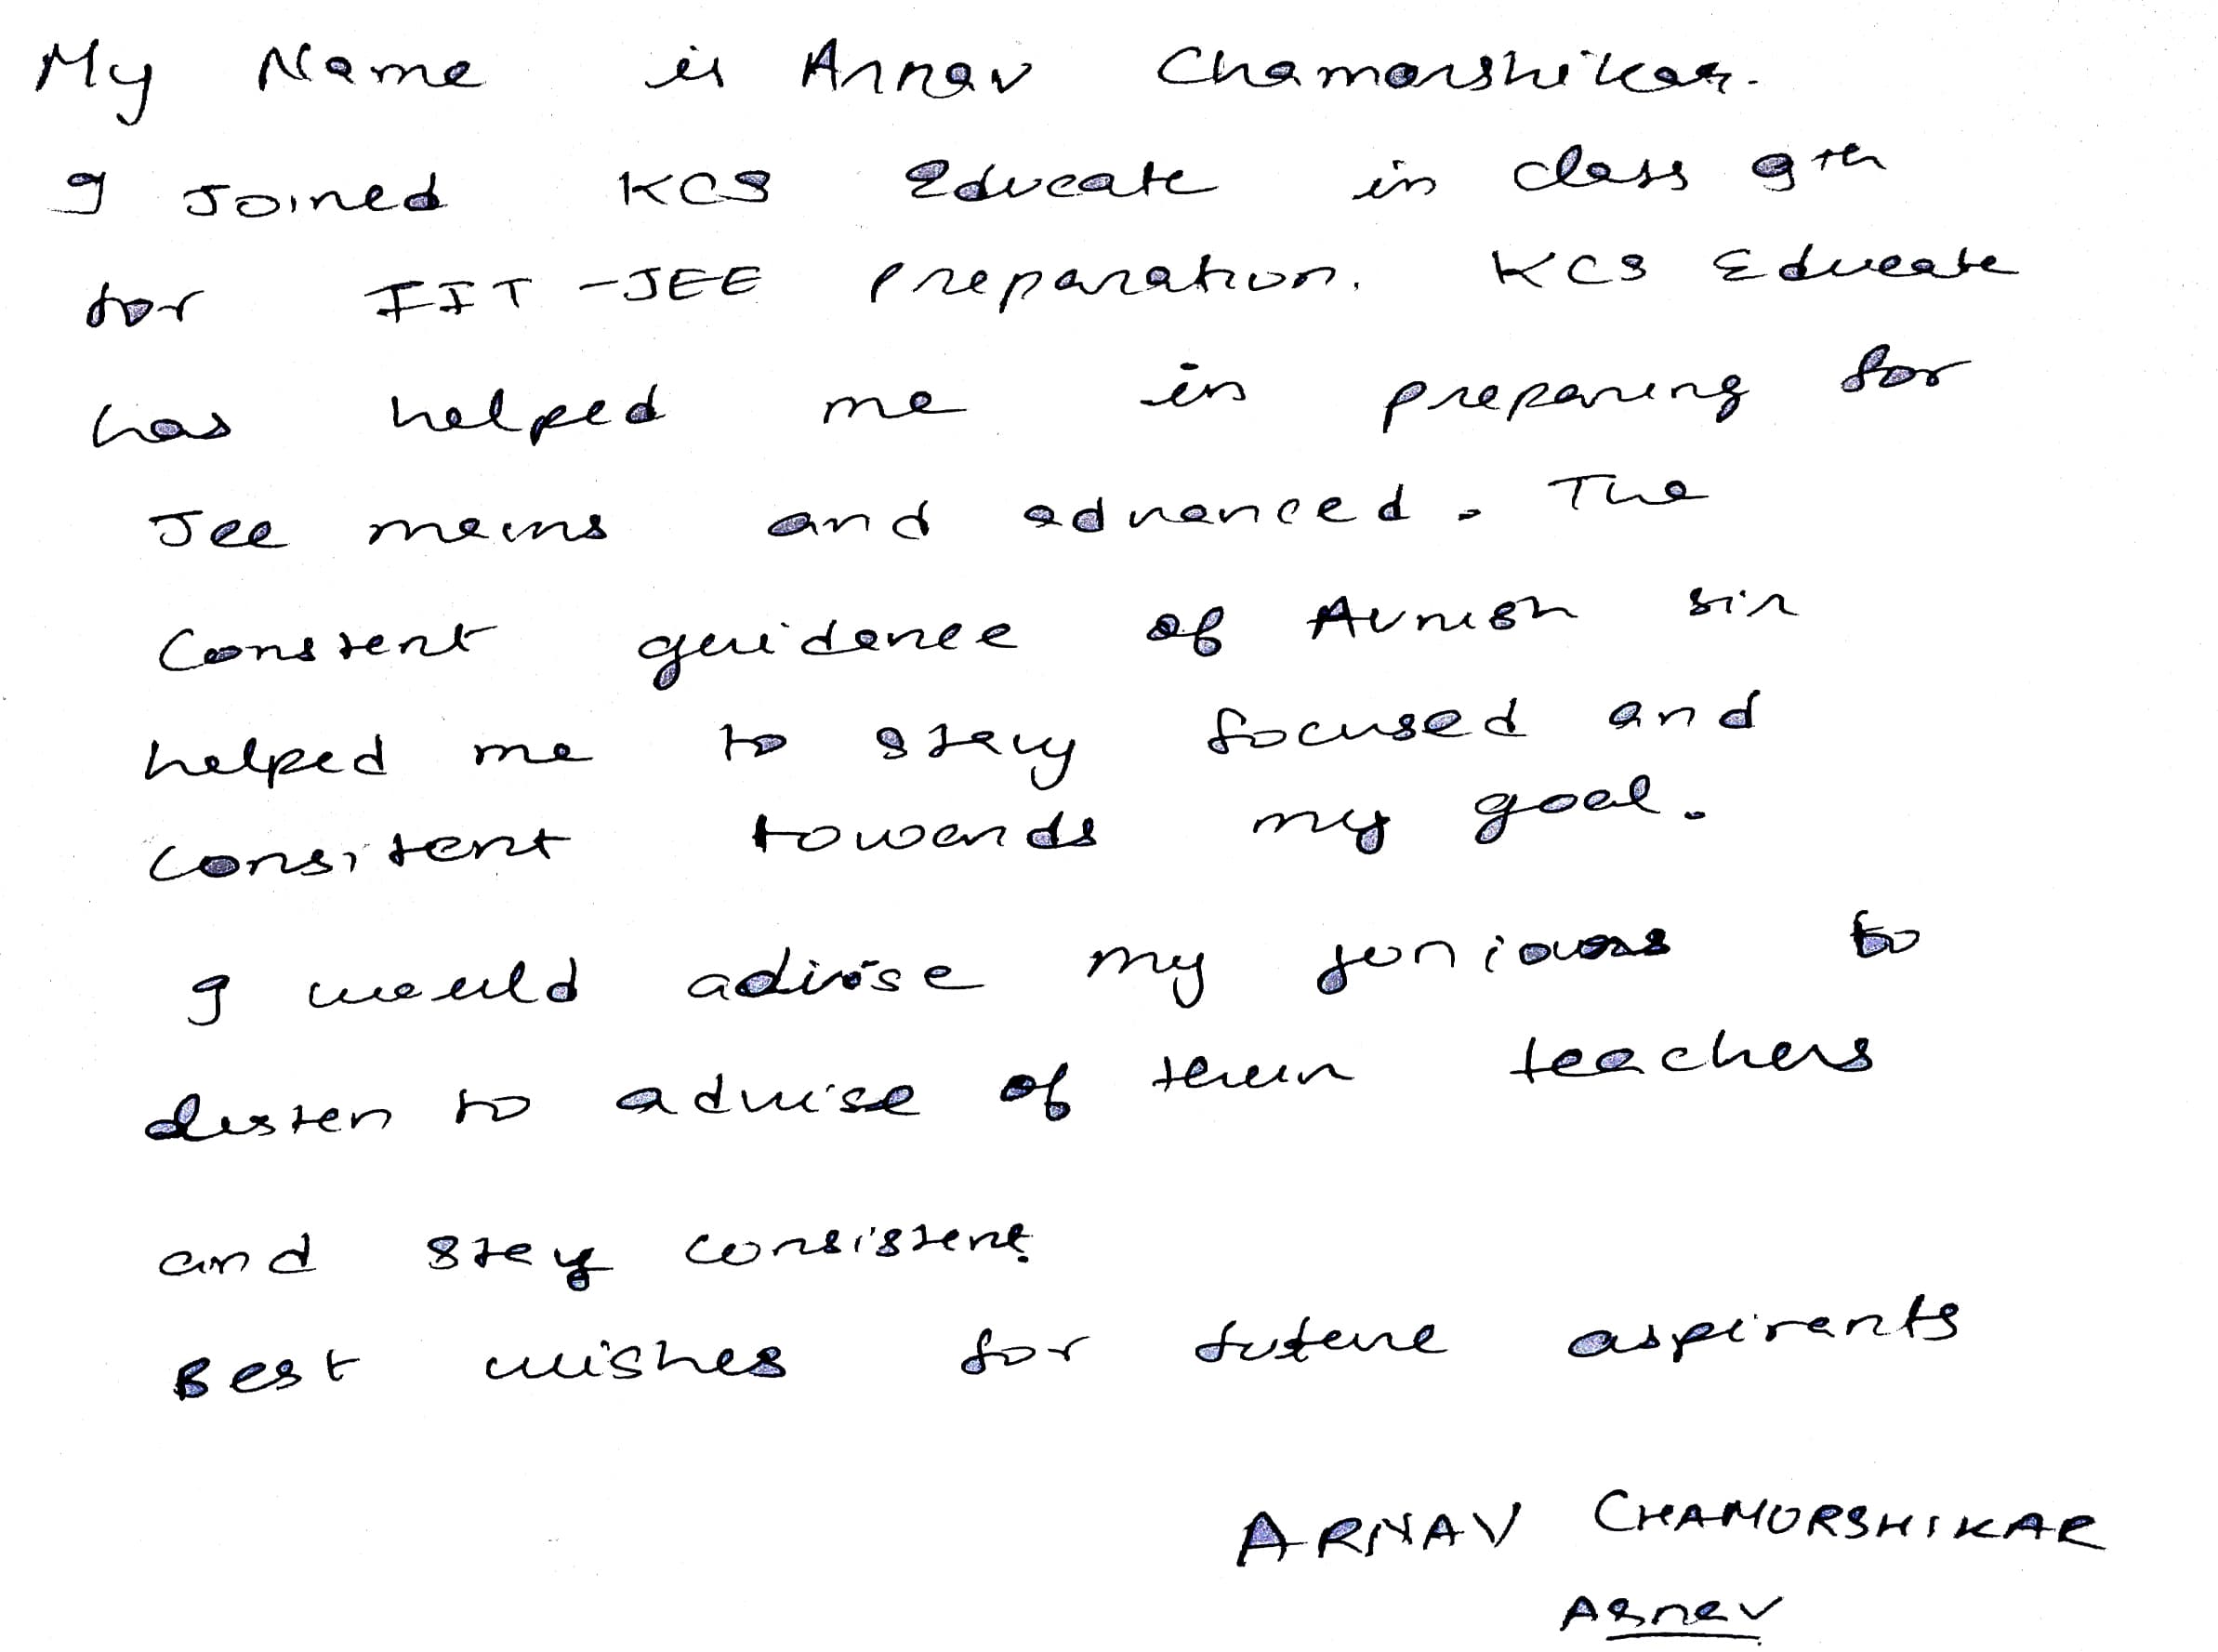 My Name is Arnav Chamorshikar.
I Joined KCS Educate in class 9th
for IIT-JEE Preparation. KCS Educate
has helped me in preparing for
Jee mains and advanced. The
Constent guidance of Avnish sir
helped me to stay focused and
consitent towards my goal.
I would advise my juniours to
listen to advise of their teachers
and stay consistent.
Best wishes for future aspirants
ARNAV CHAMORSHIKAR
Arnav